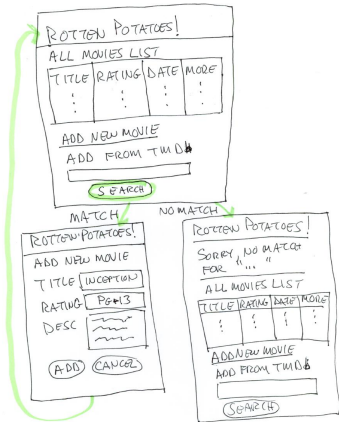 ROTTEN POTATOES!
ALL MOVIES LIST
TITLE RATING DATE MORE
ADD NEW MOVIE
ADD FROM TMDb
SEARCH
MATCH
NO MATCH
ROTTEN POTATOES!
ADD NEW MOVIE
TITLE INCEPTION
RATING PG-13
DESC
ADD CANCEL
ROTTEN POTATOES!
SORRY, NO MATCH
FOR "..."
ALL MOVIES LIST
TITLE RATING DATE MORE
ADD NEW MOVIE
ADD FROM TMDb
SEARCH